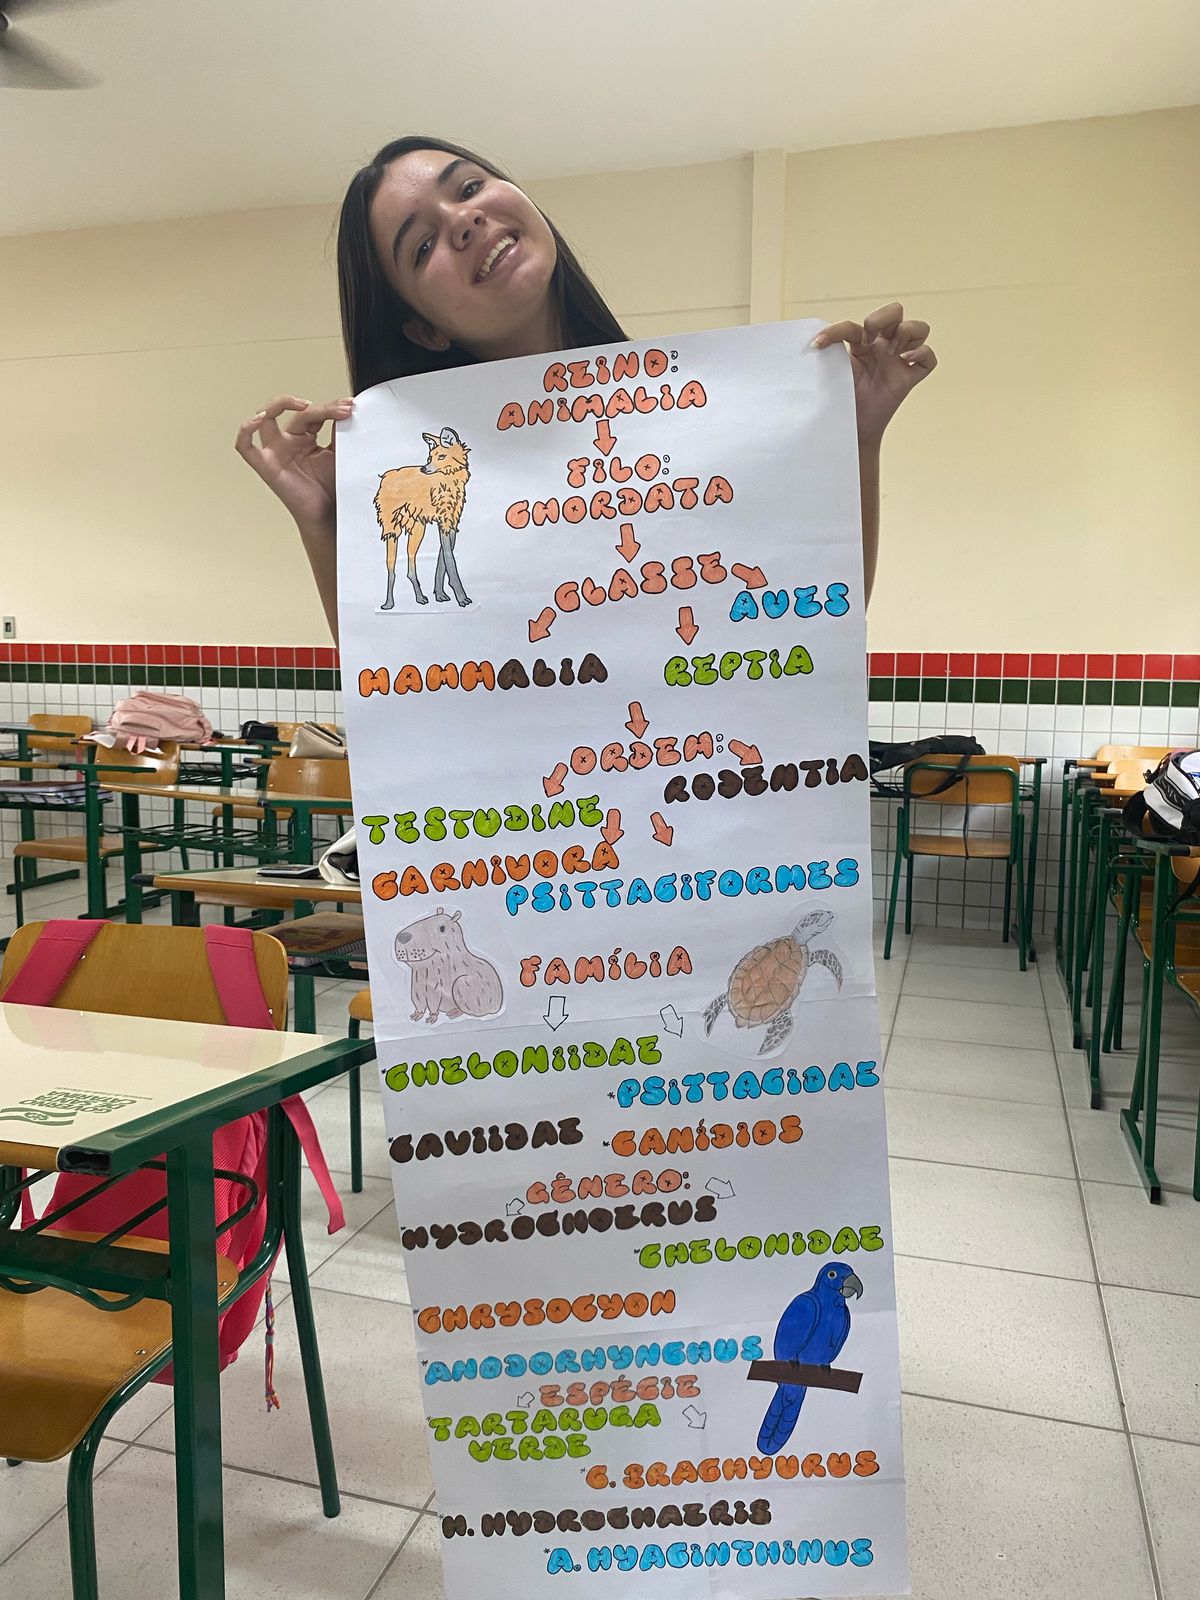 REINO:
ANIMALIA
FILO:
CHORDATA
CLASSE
AVES
MAMMALIA
REPTIA
ORDEM:
RODENTIA
TESTUDINE
CARNIVORA
PSITTACIFORMES
FAMÍLIA
*CHELONIIDAE
*PSITTACIDAE
*CAVIIDAE
*CANÍDIOS
GÊNERO:
*HYDROCHOERUS
*CHELONIDAE
*CHRYSOCYON
*ANODORHYNCHUS
ESPÉCIE
*TARTARUGA
VERDE
*C. BRACHYURUS
*H. HYDROCHAERIS
*A. HYACINTHINUS